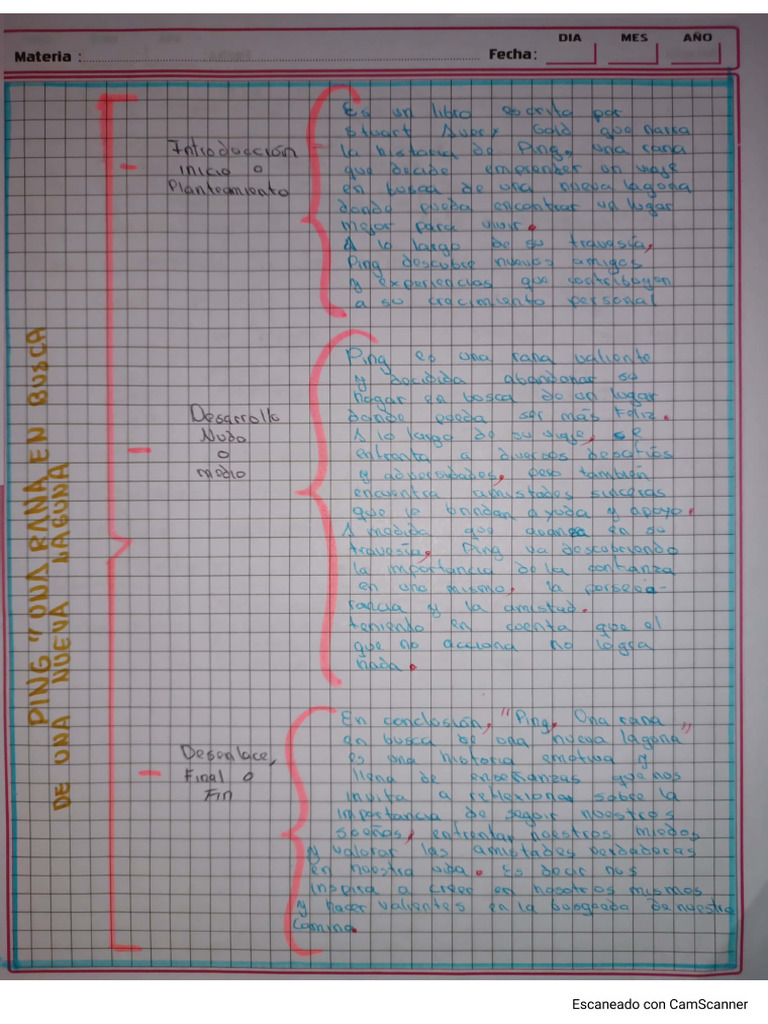 DIA MES AÑO
Materia : Fecha:
PING "UNA RANA EN BUSCA
DE UNA NUEVA LAGUNA
Introducción
inicio o
Planteamiento
Es un libro escrito por
Stuart Avery Gold que narra
la historia de Ping, una rana
que decide emprender un viaje
en busca de una nueva laguna
donde pueda encontrar un lugar
mejor para vivir.
A lo largo de su travesía,
Ping descubre nuevos amigos
y experiencias que contribuyen
a su crecimiento personal
Desarrollo
Nudo
o
medio
Ping es una rana valiente
y decidida abandonar su
hogar en busca de un lugar
donde pueda ser más feliz.
A lo largo de su viaje, se
enfrenta a diversos desafíos
y adversidades, pero también
encuentra amistades sinceras
que le brindan ayuda y apoyo.
A medida que avanza en su
travesía, Ping va descubriendo
la importancia de la confianza
en uno mismo, la perseve-
rancia y la amistad.
teniendo en cuenta que el
que no acciona no logra
nada.
Desenlace,
Final o
Fin
En conclusión, "Ping, Una rana
en busca de una nueva laguna"
es una historia emotiva y
llena de enseñanzas que nos
invita a reflexionar sobre la
importancia de seguir nuestros
sueños, enfrentar nuestros miedos
y valorar las amistades verdaderas
en nuestra vida. Es decir nos
inspira a creer en nosotros mismos
y hacer valientes en la busqueda de nuestro
camino.
Escaneado con CamScanner